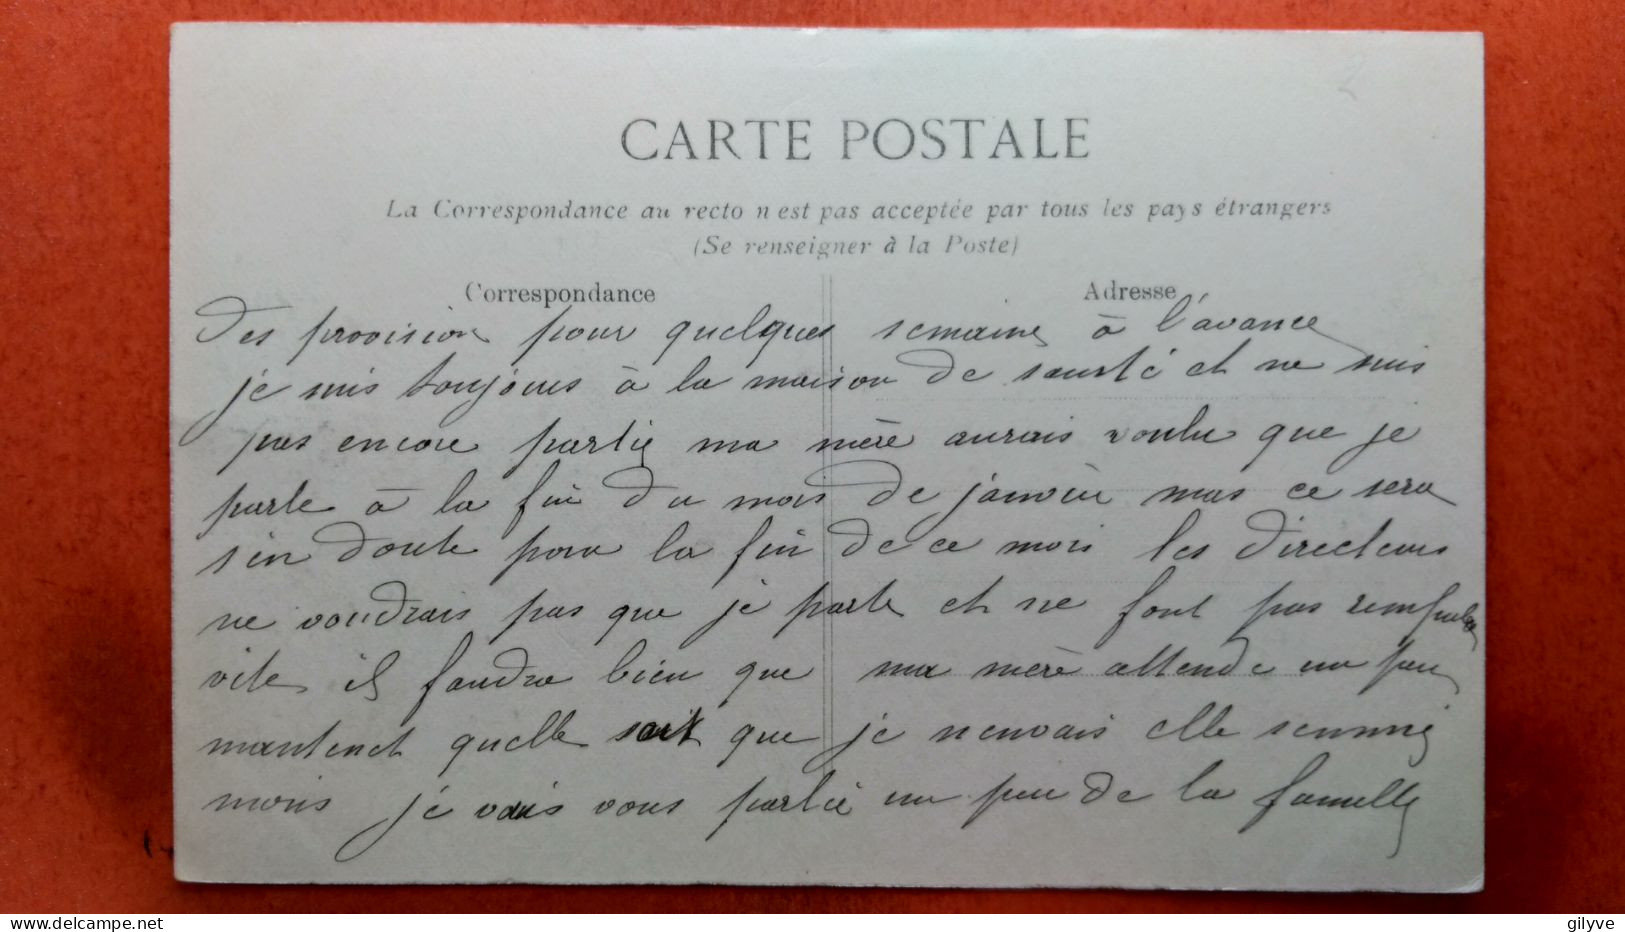 CARTE POSTALE
La Correspondance au recto n'est pas acceptée par tous les pays étrangers
(Se renseigner à la Poste)
Correspondance
Adresse
des provision pour quelques semaine à l'avance
je suis toujours à la maison de santé et ne suis
pas encore partie ma mère aurais voulu que je
parte à la fin du mois de janvier mais ce sera
sin doute pour la fin de ce mois les directeurs
ne voudrais pas que je parte et ne font pas
vite il faudra bien que ma mère attende un peu
mantenet quelle soit que je elle
mois je vais vous parlir un peu de la famille
delcampe.net
gilyve